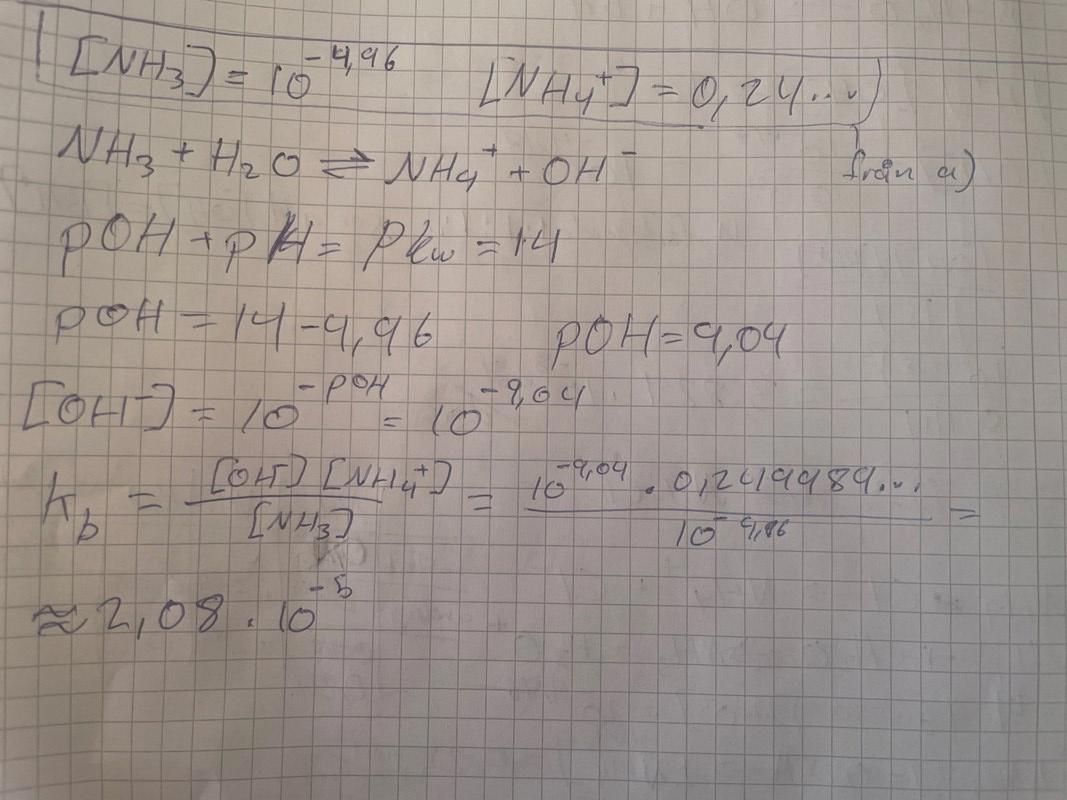 [NH₃] = 10^-4,96 [NH₄⁺] = 0,24...
NH₃ + H₂O ⇌ NH₄⁺ + OH⁻
från a)
pOH + pH = pKw = 14
pOH = 14 - 4,96 pOH = 9,04
[OH⁻] = 10^-pOH = 10^-9,04
k_b = [OH⁻][NH₄⁺] / [NH₃] = 10^-9,04 · 0,249989... / 10^-4,96 =
≈ 2,08 · 10^-5